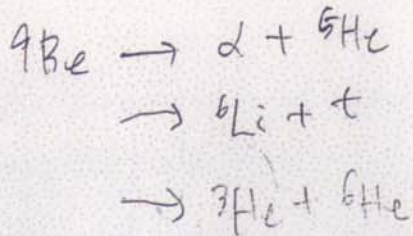 ⁹Be → α + ⁵He
→ ⁶Li + t
→ ³He + ⁶He